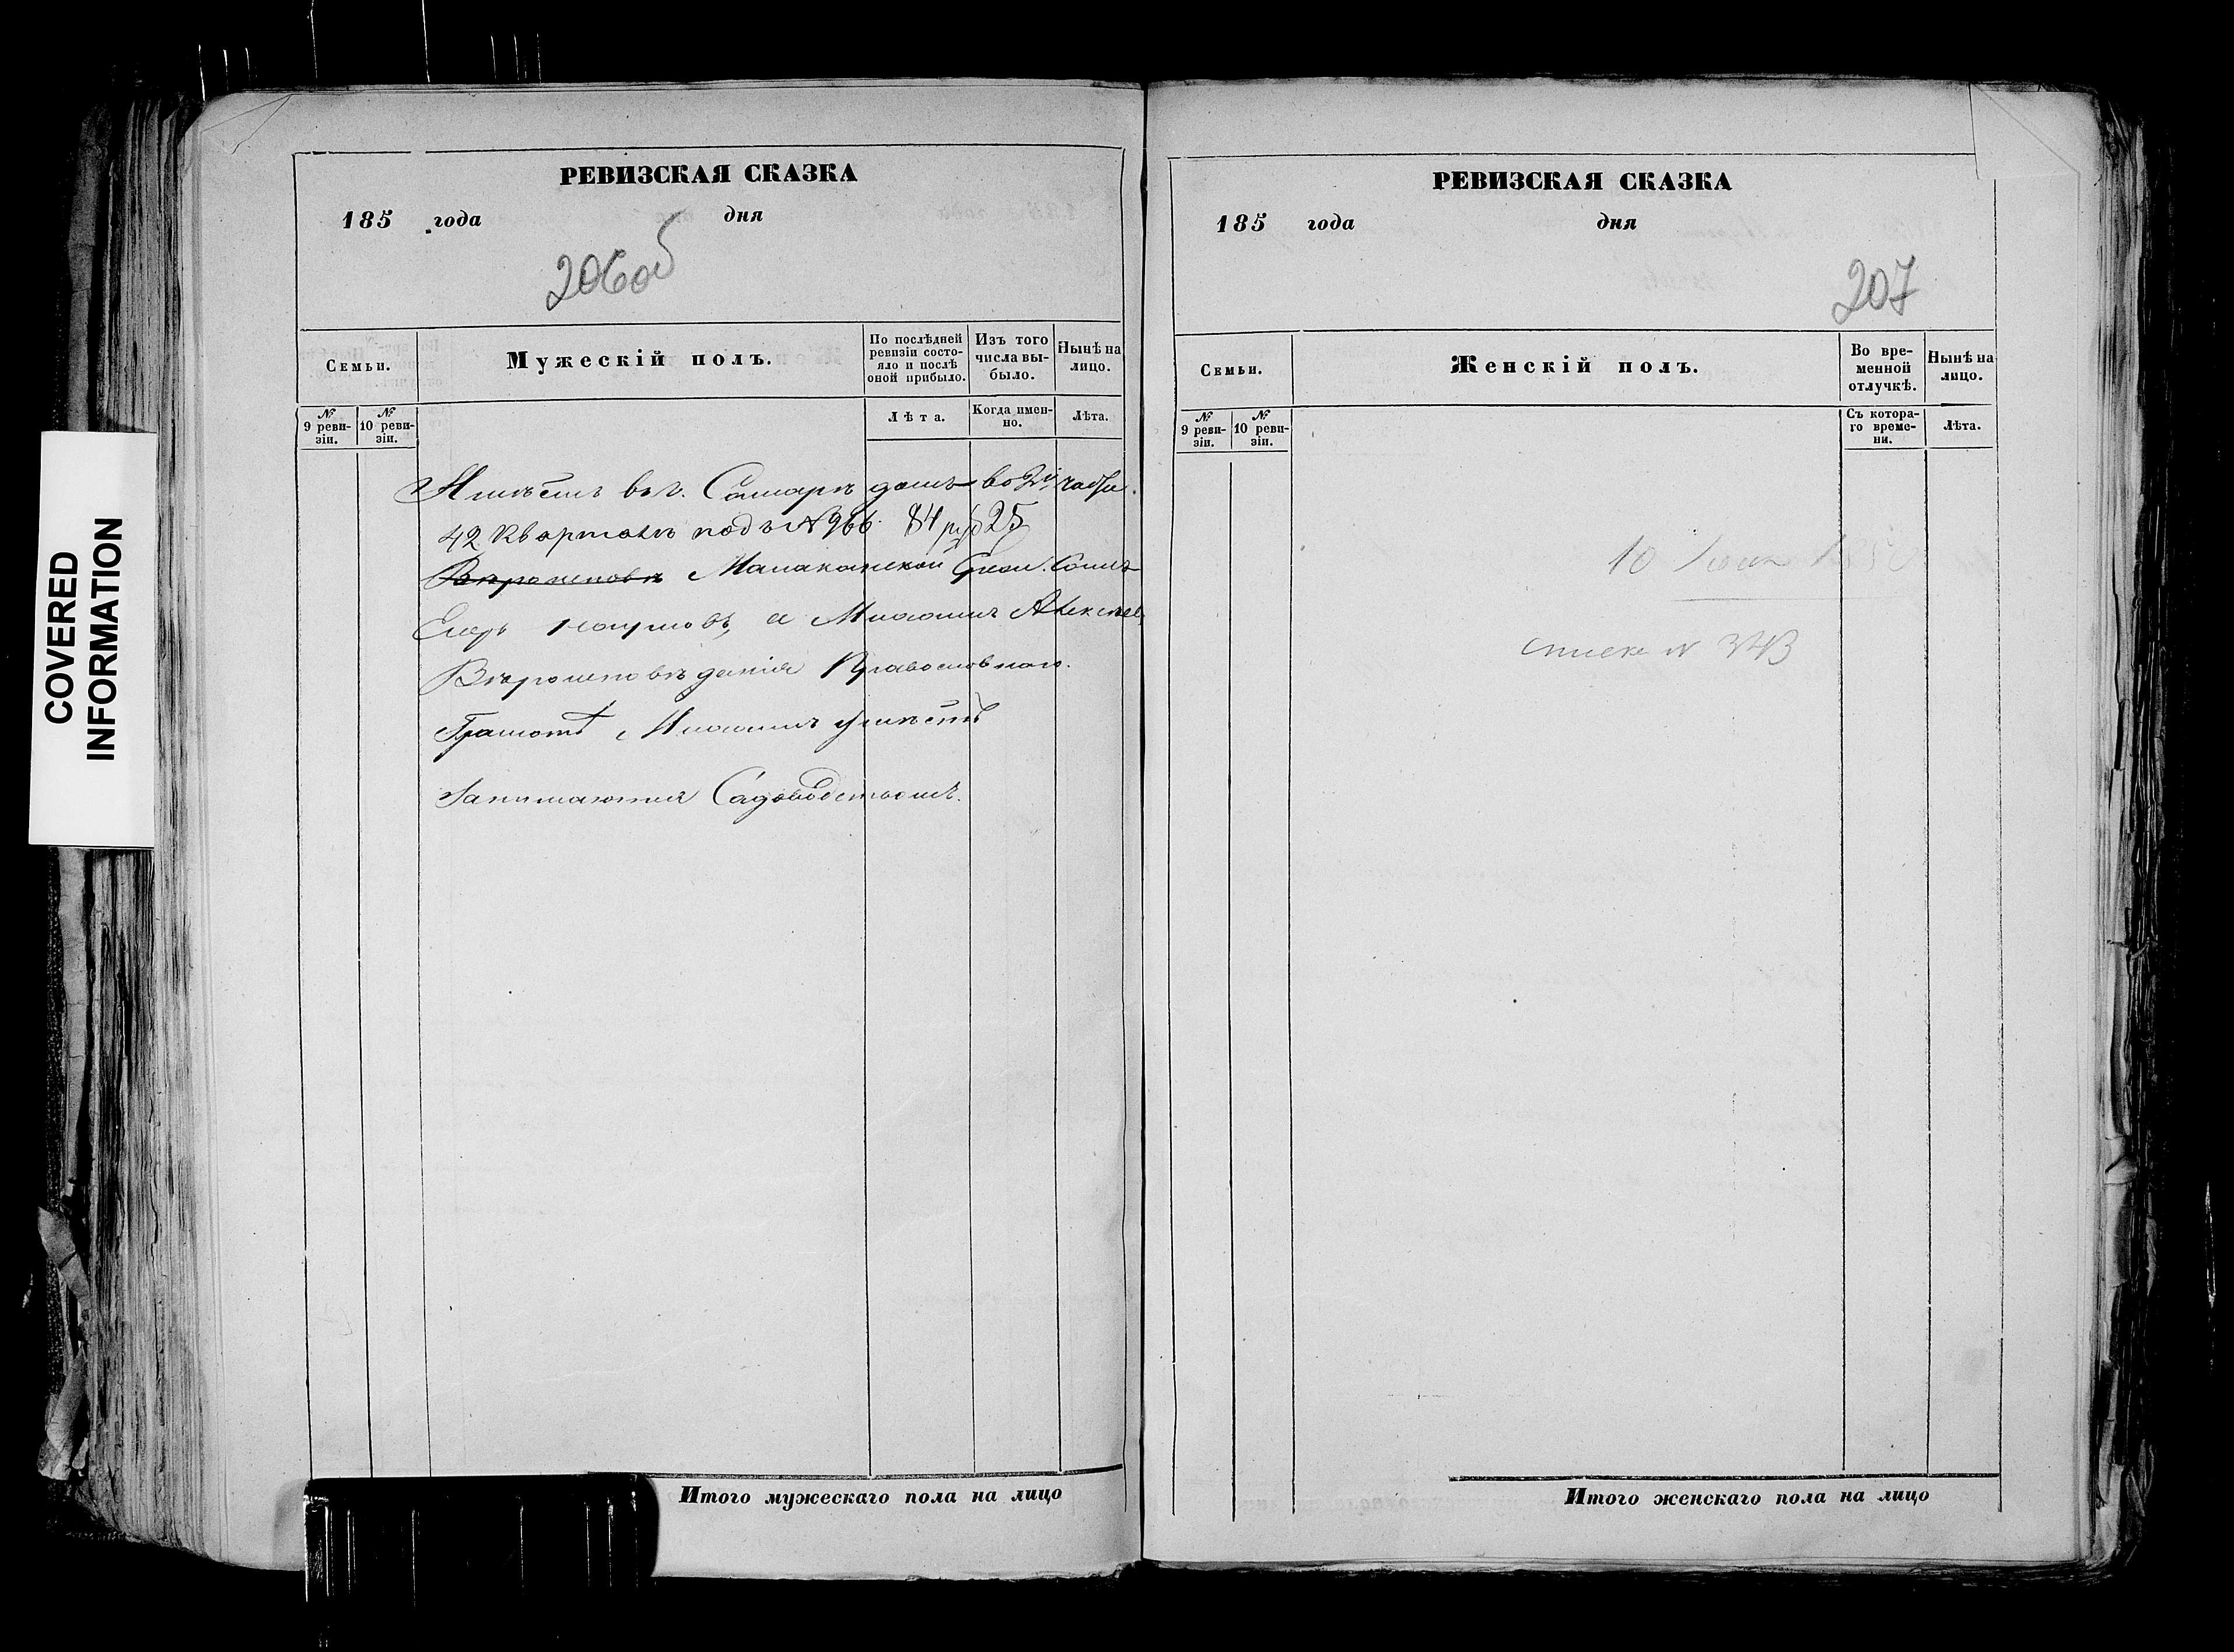 COVERED
INFORMATION
РЕВИЗСКАЯ СКАЗКА
185 года дня
206об
Семьи.
Мужескій полъ.
По послѣдней ревизіи состояло и послѣ оной прибыло.
Изъ того числа выбыло.
Нынѣ на лицо.
№ 9 ревизіи.
№ 10 ревизіи.
Лѣта.
Когда именно.
Лѣта.
Имѣетъ въ г. Самарѣ домъ во 2й части.
42 квартала подъ № 966. 84 руб 25
Молоканской
Егоръ а Алексѣев
Вѣроисповѣданія Православнаго.
Грамотѣ умѣетъ
Занимаются Садоводствомъ.
Итого мужескаго пола на лицо
РЕВИЗСКАЯ СКАЗКА
185 года дня
207
Семьи.
Женскій полъ.
Во временной отлучкѣ.
Нынѣ на лицо.
№ 9 ревизіи.
№ 10 ревизіи.
Съ котораго времени.
Лѣта.
10
списк № 343
Итого женскаго пола на лицо